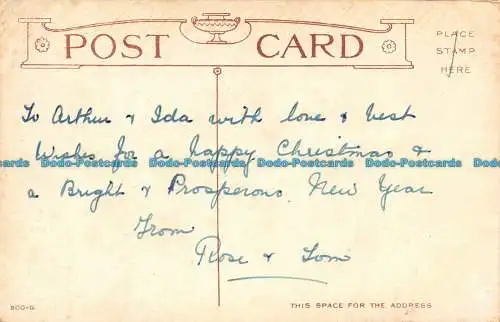 POST CARD
PLACE
STAMP
HERE
To Arthur & Ida with love & best
Wishes for a Happy Christmas &
Dodo-Postcards Dodo-Postcards Dodo-Postcards Dodo-Postcards Dodo-Postcards
a Bright & Prosperous New Year
From
Rose & Tom
800-G
THIS SPACE FOR THE ADDRESS